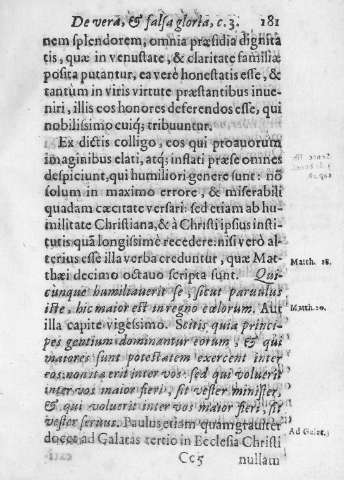 De verâ, & falsa gloriâ, c. 3. 181
nem splendorem, omnia præsidia dignita
tis, quæ in venustate, & claritate familiæ
posita putantur, ea verè honestatis esse, &
tantùm in viris virtute præstantibus inue-
niri, illis eos honores deferendos esse, qui
nobilissimo cuiq; tribuuntur.
Ex dictis colligo, eos qui proauorum
imaginibus elati, atq; inflati præ se omnes
despiciunt, qui humiliori genere sunt: nõ
solum in maximo errore, & miserabili
quadam cæcitate versari: sed etiam ab hu-
militate Christiana, & à Christi ipsius insti-
tutis quã longissimè recedere: nisi verò al-
terius esse illa verba creduntur, quæ Mat-
thæi decimo octauo scripta sunt. Qui-
Matth. 18.
cunque humiliauerit se, sicut paruulus
iste, hic maior est in regno cœlorum. Aut
Matth. 20.
illa capite vigesimo. Scitis quia princi-
pes gentium dominantur eorum, & qui
maiores sunt potestatem exercent inter
eos: non ita erit inter vos: sed qui voluerit
inter vos maior fieri, sit vester minister,
& qui voluerit inter vos maior fieri, sit
vester seruus. Paulus etiam quam grauiter
docet ad Galatas tertio in Ecclesia Christi
Ad Galat. 3
Cc5 nullam